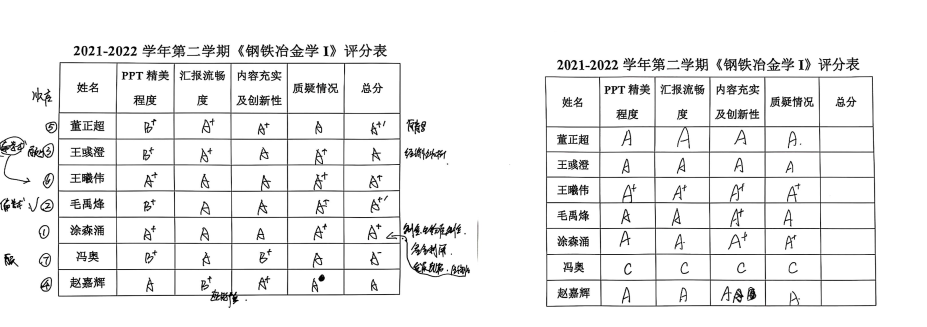 2021-2022 学年第二学期《钢铁冶金学 I》评分表
姓名 PPT 精美程度 汇报流畅度 内容充实及创新性 质疑情况 总分
⑤ 董正超 B+ A+ A+ A A+'
③ 王彧澄 B+ A+ A A+ A
⑥ 王曦伟 A+ A A A+ A+
② 毛禹烽 B+ A A A+ A+'
① 涂森涌 A+ A A A+ A+
⑦ 冯奥 B+ A B+ A A-
④ 赵嘉辉 A B+ A+ A A
2021-2022 学年第二学期《钢铁冶金学 I》评分表
姓名 PPT 精美程度 汇报流畅度 内容充实及创新性 质疑情况 总分
董正超 A A A A.
王彧澄 A A A A
王曦伟 A+ A+ A+ A+
毛禹烽 A A A+ A
涂森涌 A A A+ A+
冯奥 C C C C
赵嘉辉 A A A A